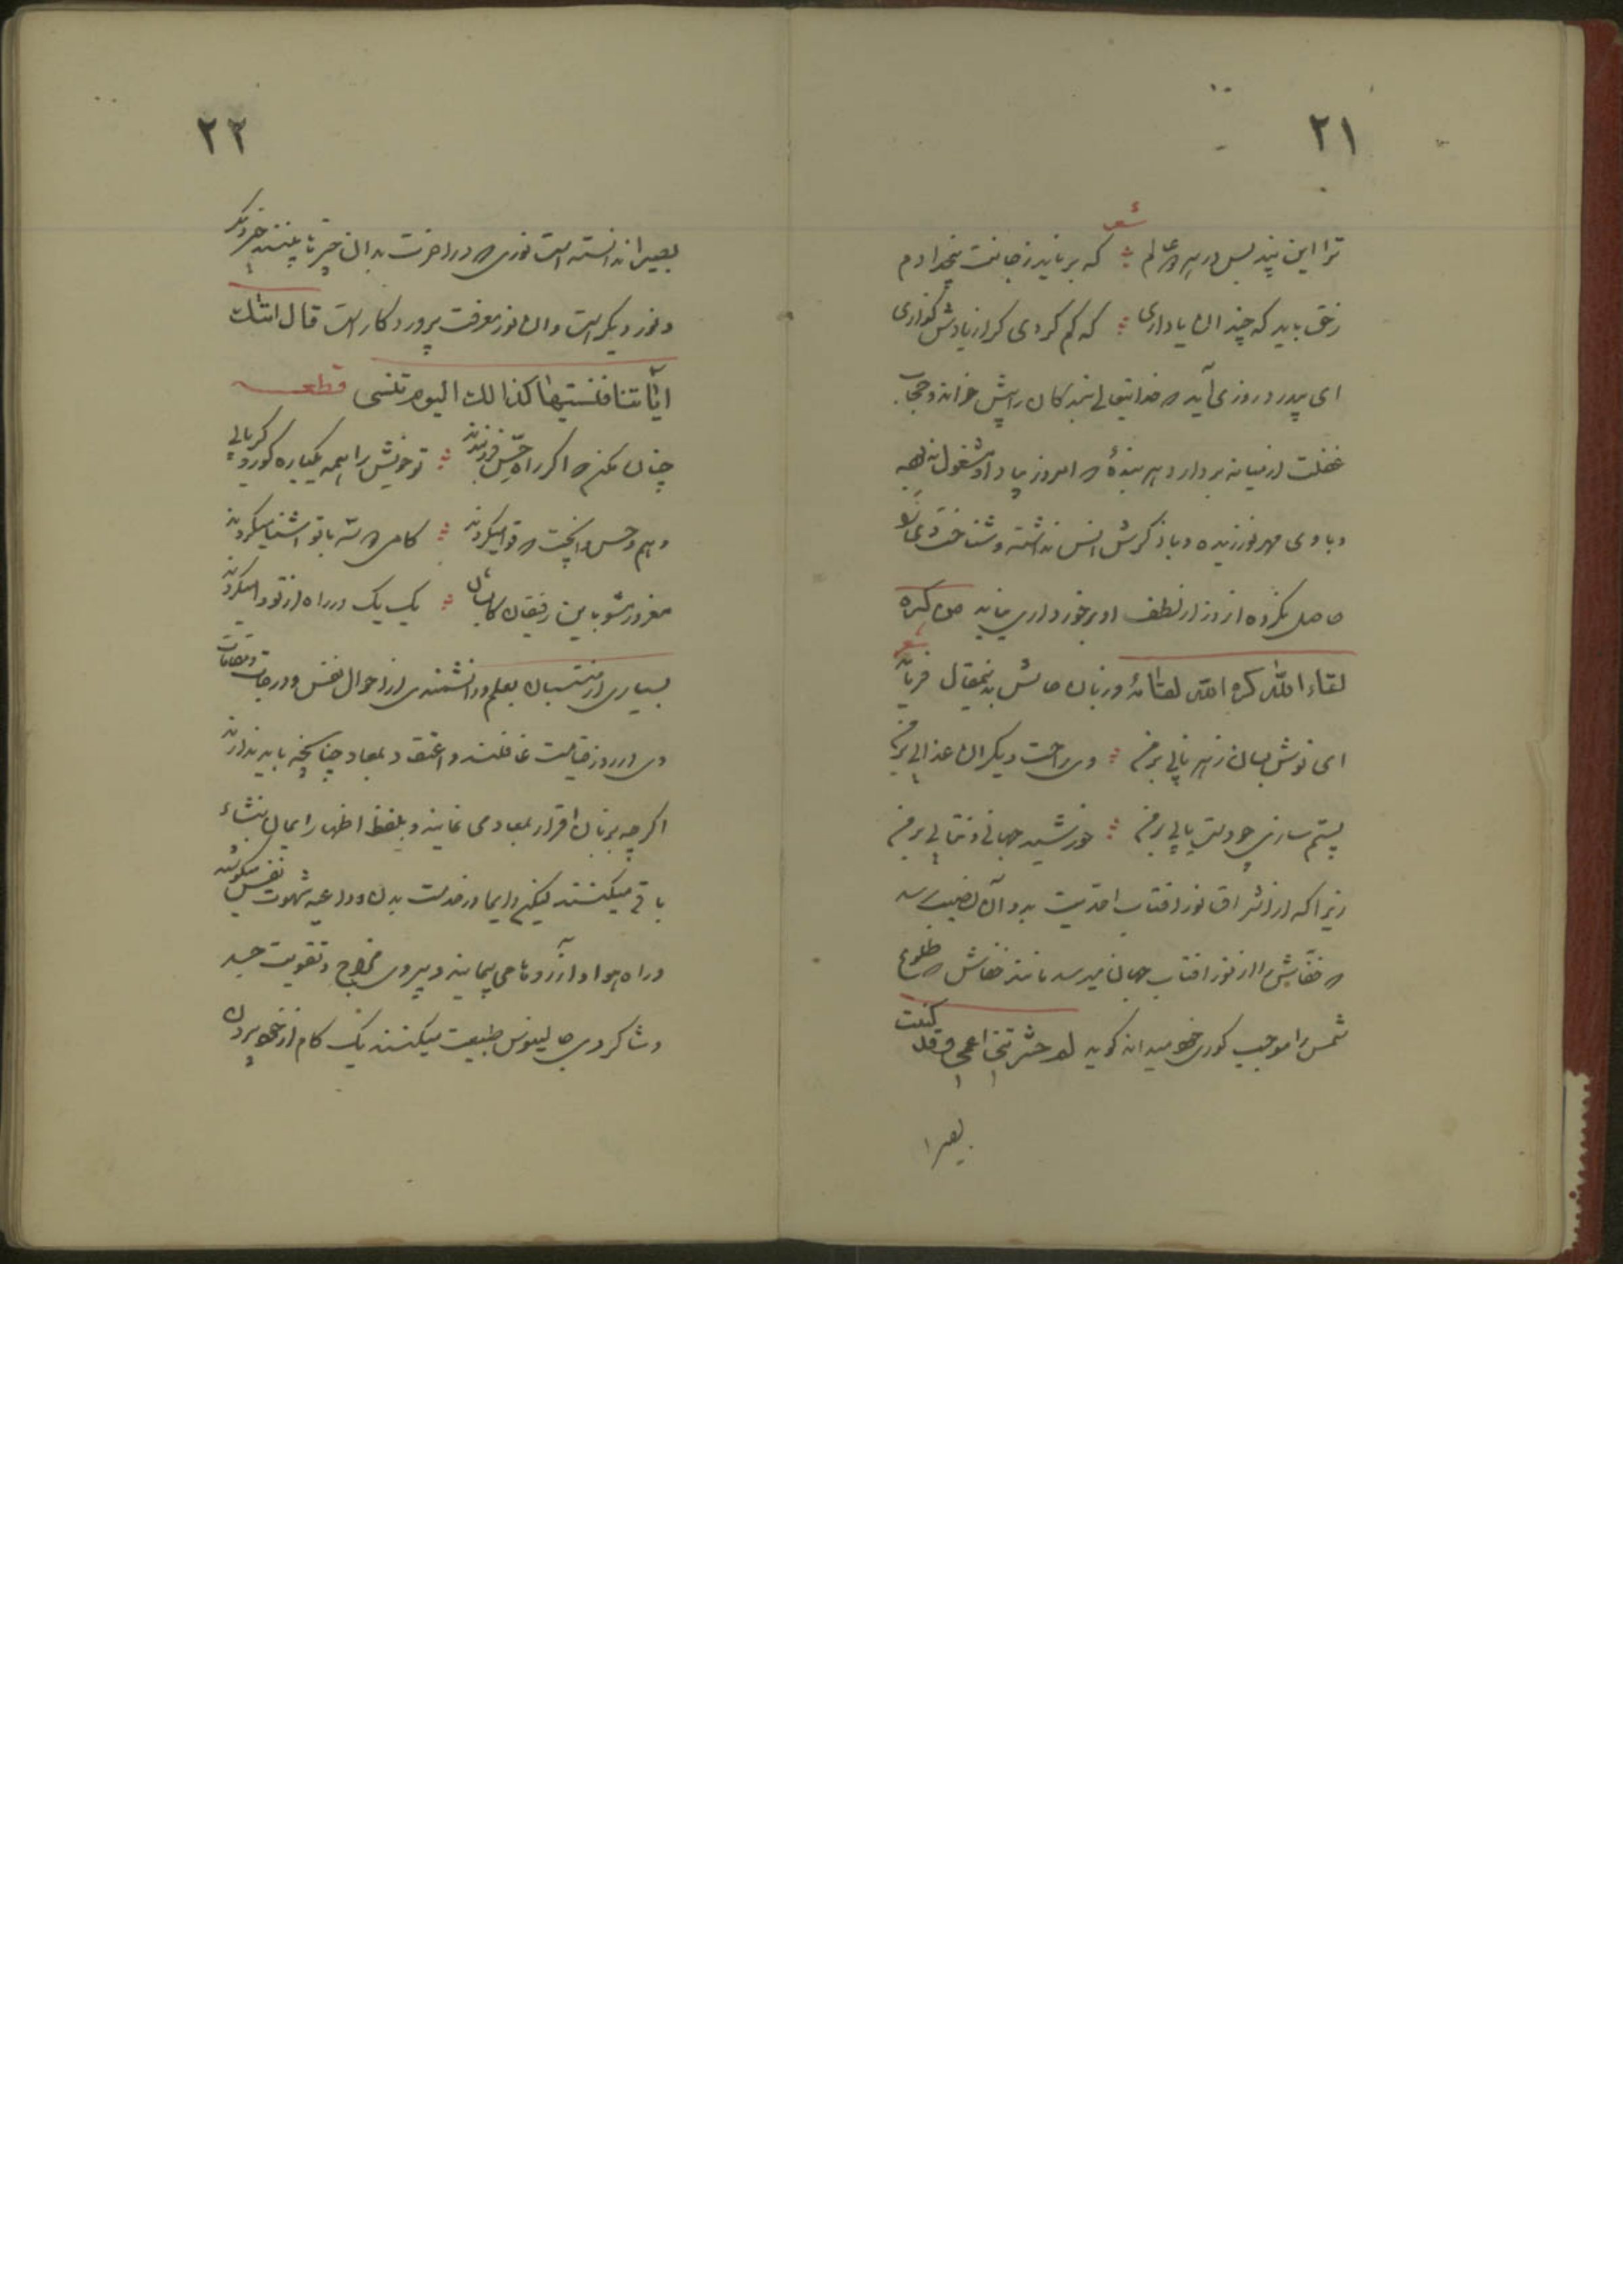 ٢١
شعر
ترا این پند بس در هر دو عالم ؞ که برناید ز جانت بی خدا دم
ز حق باید که چندان یاد آری ؞ که کم گردی گر از یادش گذاری
ای پدر روزی آید که خدایتعالی بندکان را پیش خواند و حجاب
غفلت از میانه بردارد هر بندهٔ که امروز بیاد او مشغول نه
و با وی مهر نورزیده و با ذکرش انس نداشته و شناخت وی
حاصل نکرده از روز از لطف او برخورداری نیابد من کره
لقاء الله کره الله لقائه و زبان حالش بدینمقال
شعر
ای نوش لبان زهر نابی بر من ؞ وی راحت دیکران عذابی بر من
خورشید جهانی و نتابی بر من
زیرا که از اشراق نور افتاب احدیت بدو آن نصیب رسد
که خفاش را از نور افتاب جهان میرسد مانند خفاش که طلوع
شمس را موجب کوری خود میداند کوید لم حشرتنی اعمی و قد کنت
بصیرا
٢٢
بصیرا ندانسته است نوری که در اخرت بدان چیزها بینند چیز دیکر
و نور دیکر است و ان نور معرفت پروردکار است قال اتتک
ایاتنا فنسیتها کذالک الیوم تنسی قطعه
چنان مکن که اکر راه حس فرو بندند ؞ تو خویش را همه یکباره کور و کر یابی
وهم و حس و که قوا میکردند ؞ با تو اشنا میکردند
مغرور مشو باین رفیقان کایشان ؞ یک یک در راه از تو وا میکردند
بسیاری از منتسبان بعلم و دانشمندی از احوال نفس و درجات و مقامات
وی در روز قیامت غافلند و اعتقاد بمعاد چنانچه باید ندارند
اکرچه بزبان اقرار بمعاد می نمایند و بلفظ اظهار ایمان بنشاء
باقی میکنند لیکن دایما در خدمت بدن و داعیه شهوت نفس میکوشند
و راه هوا و آرزوها می پیمایند و پیروی مزاج و تقویت جسد
و شاکردی جالینوس طبیعت میکنند یک کام از خود بیرون